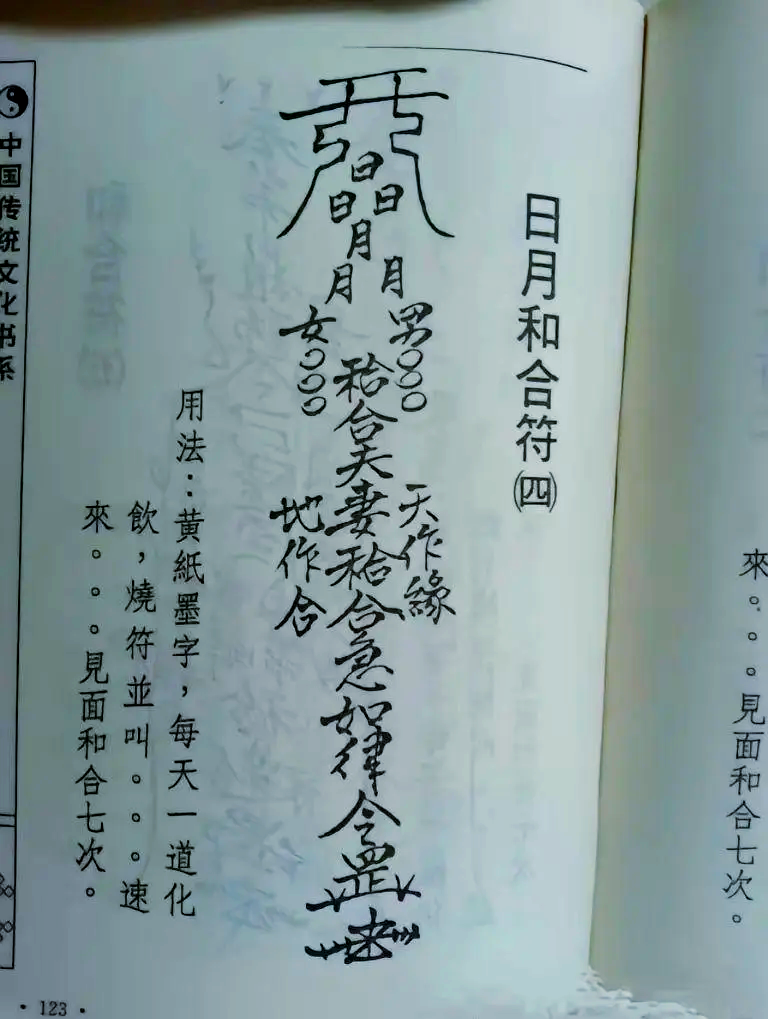 日月和合符㈣
日
日日
月
月月
男○○○
女○○○
天作緣
地作合
合夫妻
合急如律令罡
用法：黄紙墨字，每天一道化
飲，燒符並叫。。。速
來。。。見面和合七次。
中国传统文化书系
·123·
來。。。見面和合七次。